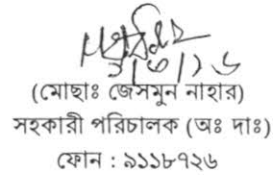 (মোছাঃ জেসমুন নাহার)
সহকারী পরিচালক (অঃ দাঃ)
ফোন : ৯১১৮৭২৬